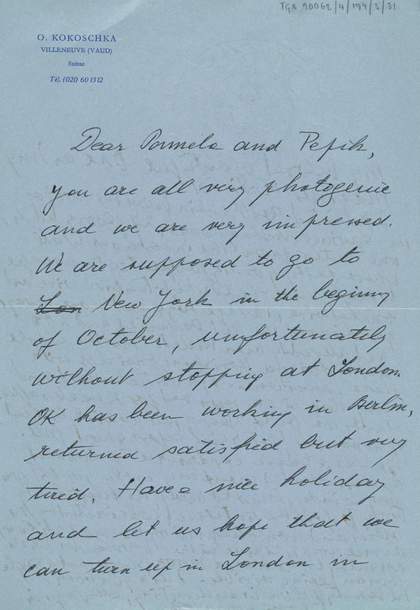 TGA 90062/4/144/2/31
O. KOKOSCHKA
VILLENEUVE (VAUD)
Suisse
Tél. (020 60 13 12
Dear Pamela and Pepik,
you are all very photogenic
and we are very impressed.
We are supposed to go to
Lon New York in the beginning
of October, unfortunately
without stopping at London.
OK has been working in Berlin,
returned satisfied but very
tired. Have a nice holiday
and let us hope that we
can turn up in London in